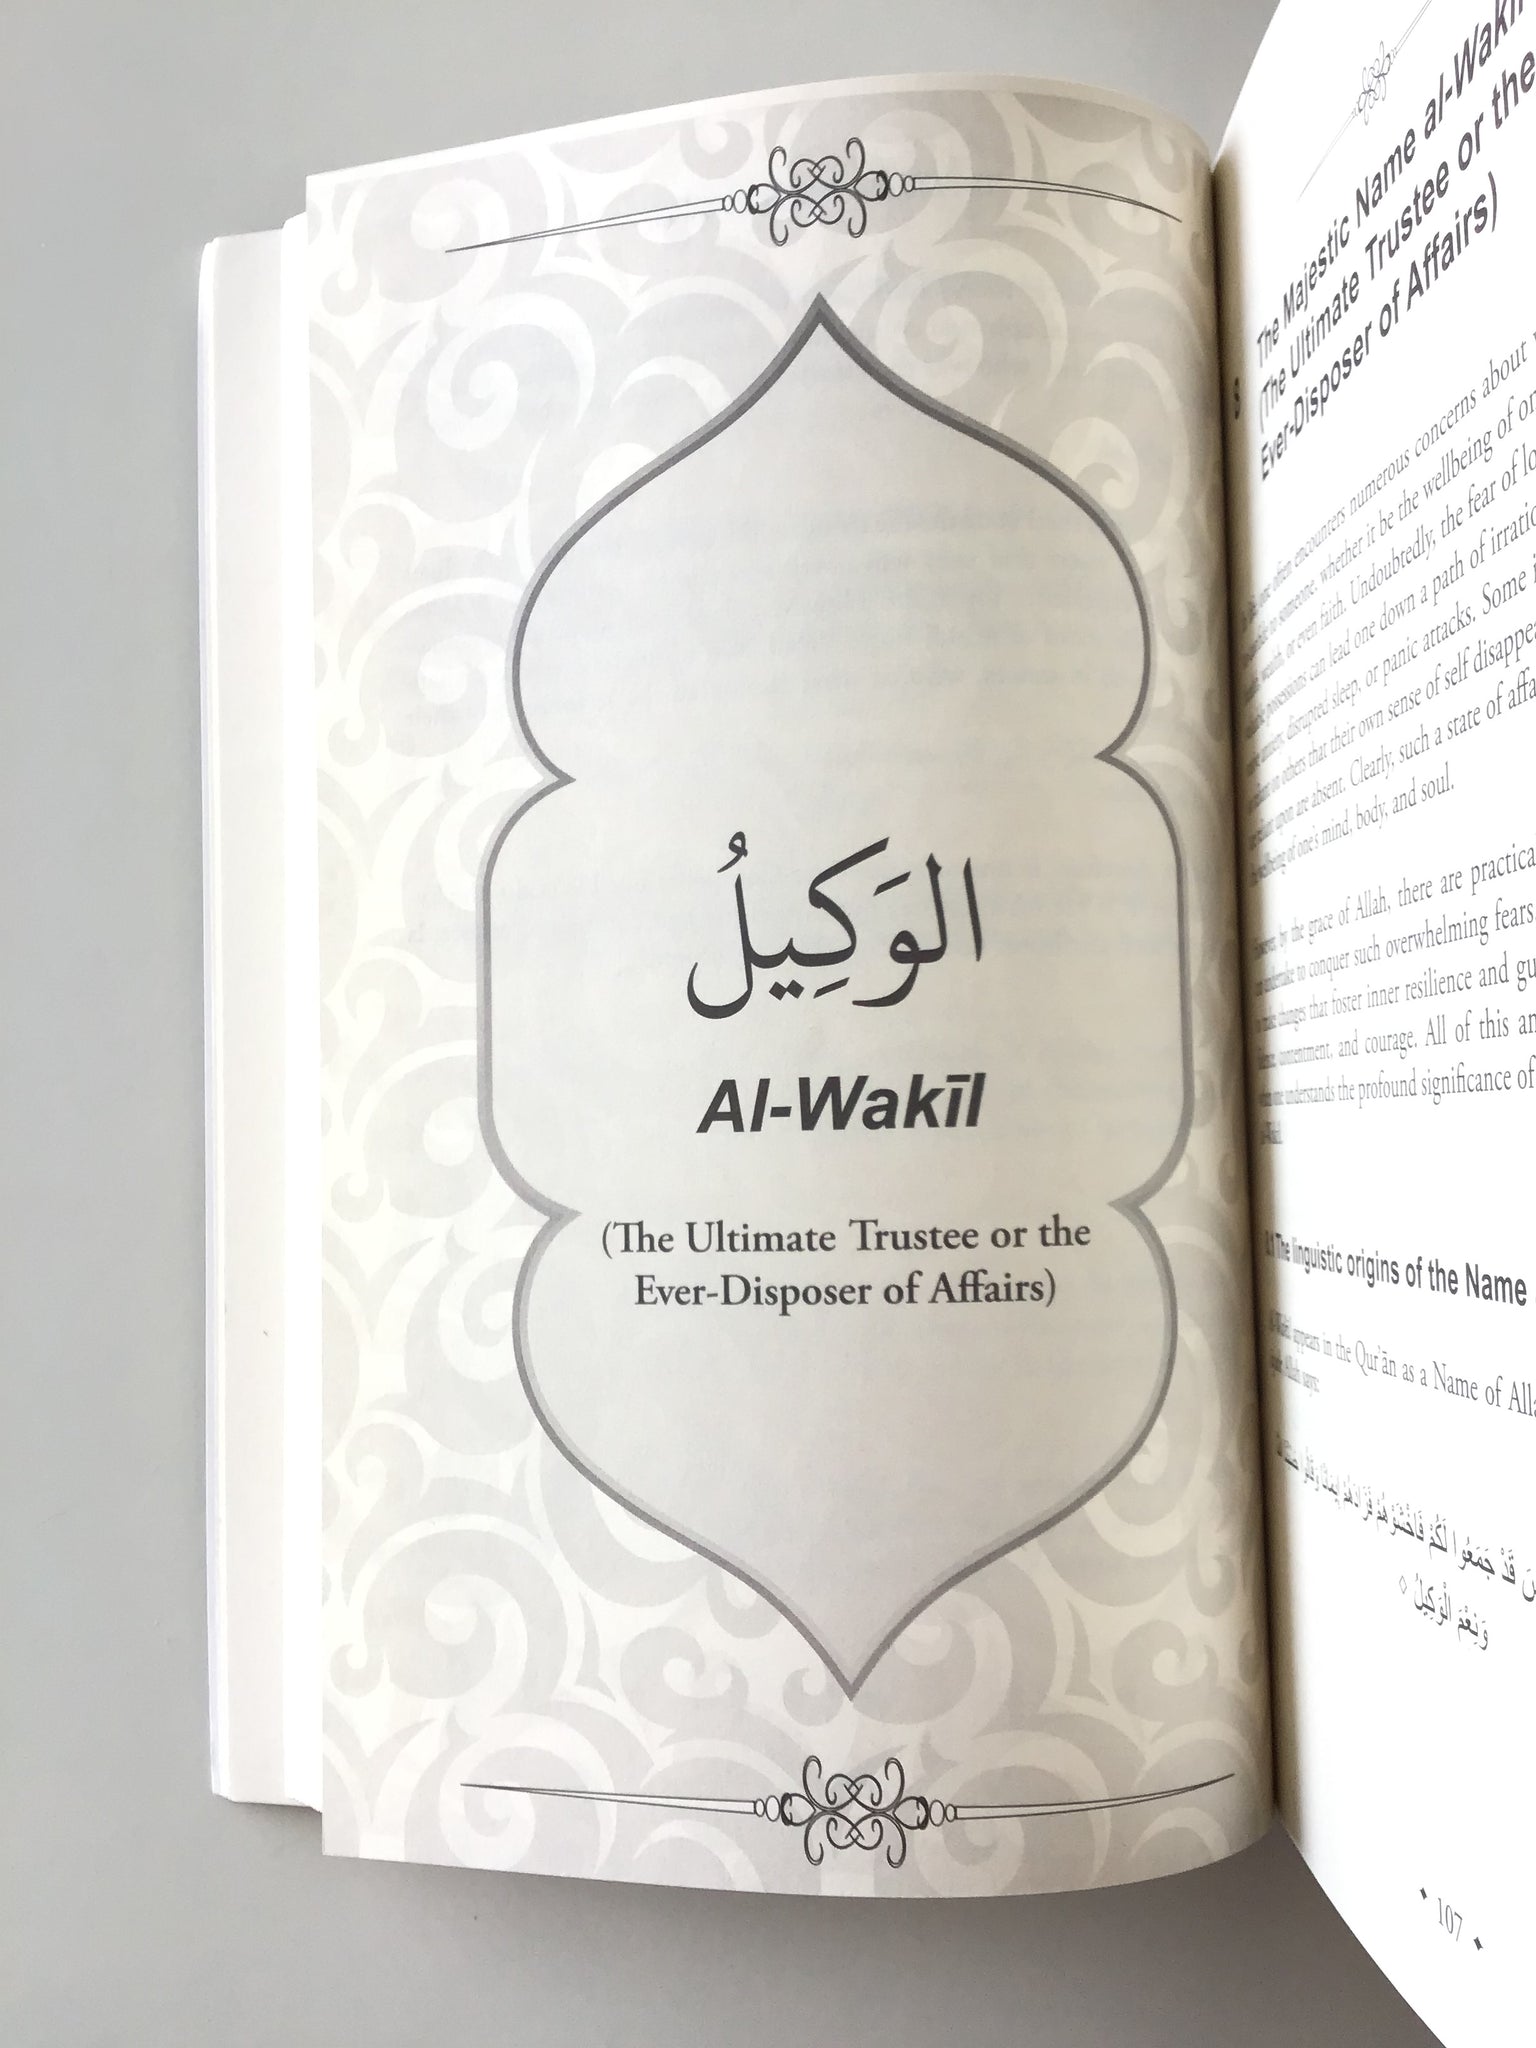 الوَكِيلُ
Al-Wakīl
(The Ultimate Trustee or the
Ever-Disposer of Affairs)
The Majestic Name al-Wakīl
(The Ultimate Trustee or the
Ever-Disposer of Affairs)
often encounters numerous concerns about
to someone, whether it be the wellbeing of
wealth, or even faith. Undoubtedly, the fear of
possessions can lead one down a path of
disrupted sleep, or panic attacks. Some
on others that their own sense of self
upon are absent. Clearly, such a state of
wellbeing of one's mind, body, and soul.
by the grace of Allah, there are
undertake to conquer such overwhelming fears
make changes that foster inner resilience and
contentment, and courage. All of this
one understands the profound significance of
The linguistic origins of the Name
appears in the Qur'ān as a Name of
Allah says:
قَدْ جَمَعُوا لَكُمْ فَاخْشَوْهُمْ فَزَادَهُمْ إِيمَانًا وَقَالُوا
وَنِعْمَ الْوَكِيلُ
107